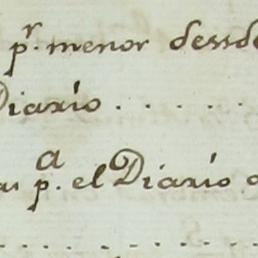 pr. menor desde
Diario . . . . . .
pa. el Diario
. . . . . . . . .